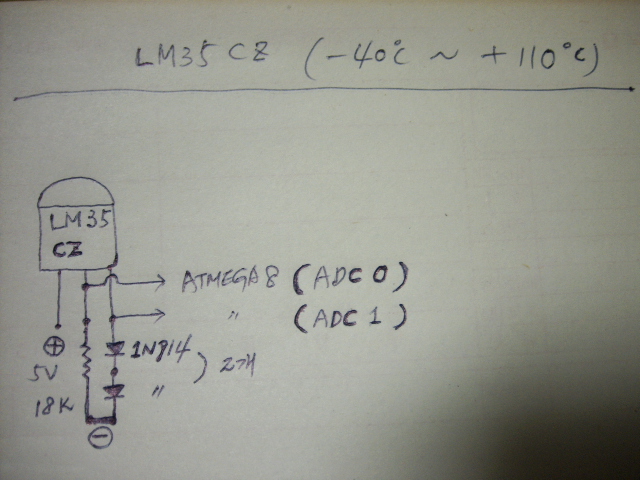 LM35 CZ (-40°C ~ +110°C)
LM35
CZ
ATMEGA8 (ADC 0)
〃 (ADC 1)
⊕
5V
1N914
〃
2개
18K
⊖